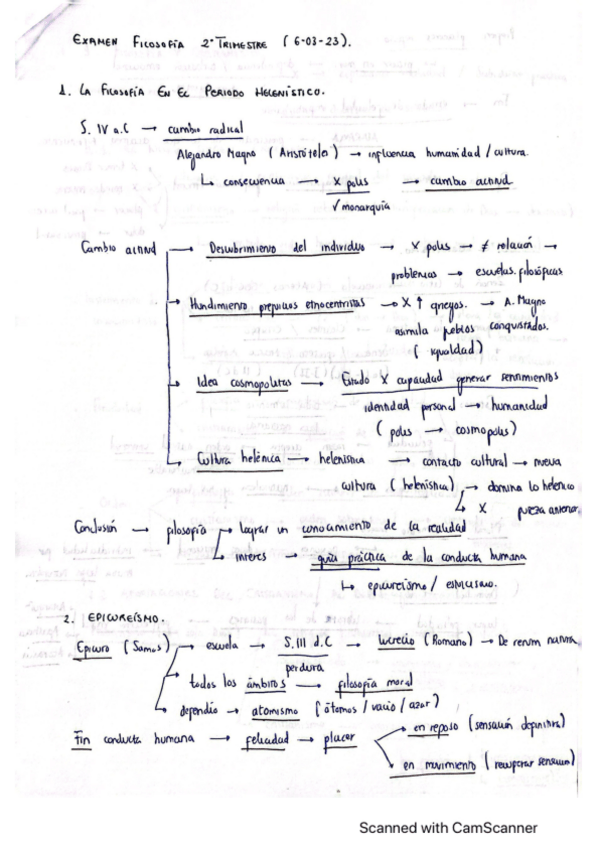 EXAMEN FILOSOFÍA 2º TRIMESTRE (6-03-23).
1. LA FILOSOFÍA EN EL PERIODO HELENÍSTICO.
S. IV a.C → cambio radical
Alejandro Magno (Aristóteles) → influencia humanidad / cultura.
↳ consecuencia → X polis → cambio actitud
✓ monarquía
Cambio actitud → Descubrimiento del individuo → X polis → ≠ relación →
problemas → escuelas filosóficas
→ Hundimiento prejuicios etnocentristas → X ↑ griegos. → A. Magno
asimila pueblos conquistados.
(igualdad)
→ Idea cosmopolitas → Estado X capacidad generar sentimientos
identidad personal → humanidad
(polis → cosmopolis)
→ Cultura helénica → helenística → contacto cultural → nueva
cultura (helenística) → domina lo helénico
↳ X pureza anterior
Conclusión → filosofía → lograr un conocimiento de la realidad
→ interés → guía práctica de la conducta humana
↳ epicureismo / estoicismo.
2. EPICUREÍSMO.
Epicuro (Samos) → escuela → S. III d.C → Lucrecio (Romano) → De rerum natura
perdura
→ todos los ámbitos → filosofía moral
→ defendio → atomismo (átomos / vacío / azar)
Fin conducta humana → felicidad → placer
en reposo (sensación definitiva)
en movimiento (recuperar sensación)
Scanned with CamScanner